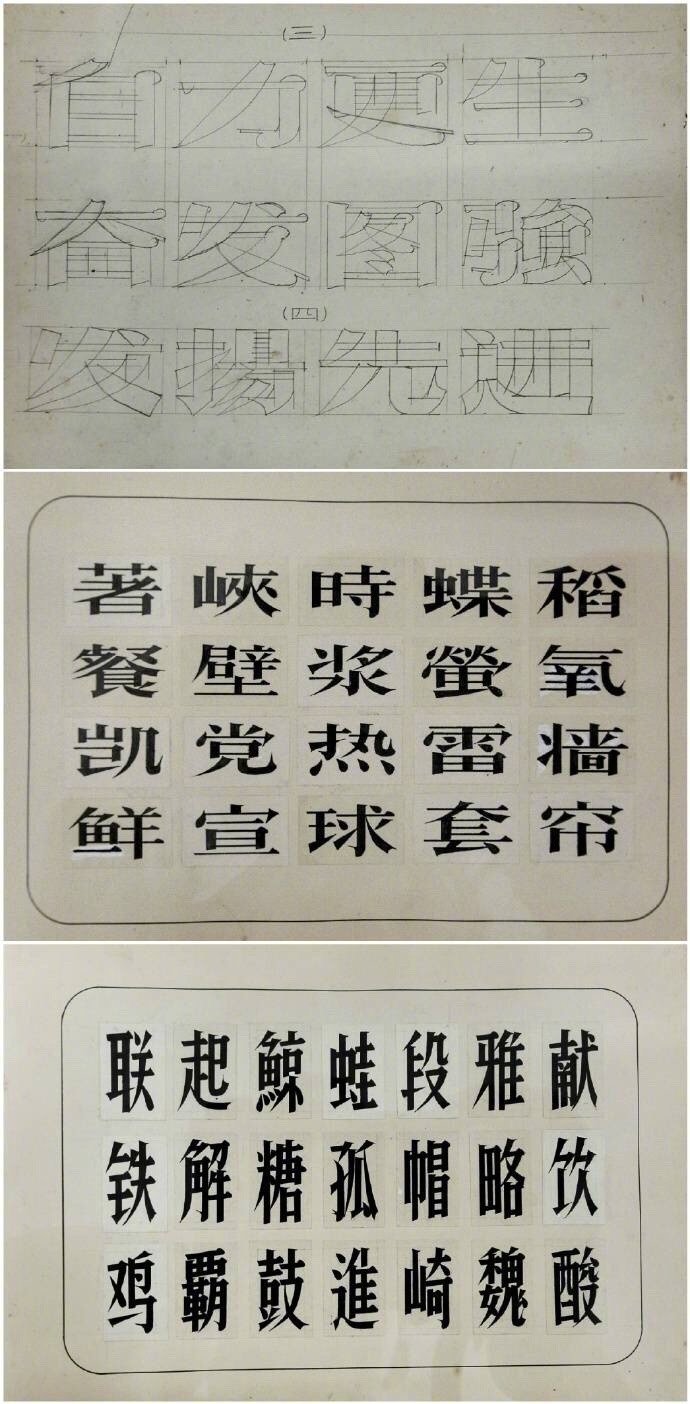 (三)
自力更生
奋发图強
(四)
发揚先进
著峽時蝶稻
餐壁浆螢氧
凯党热雷墙
鲜宣球套帘
联起鯨蛙段雅献
铁解糖孤帽略饮
鸡覇鼓進崎魏酸